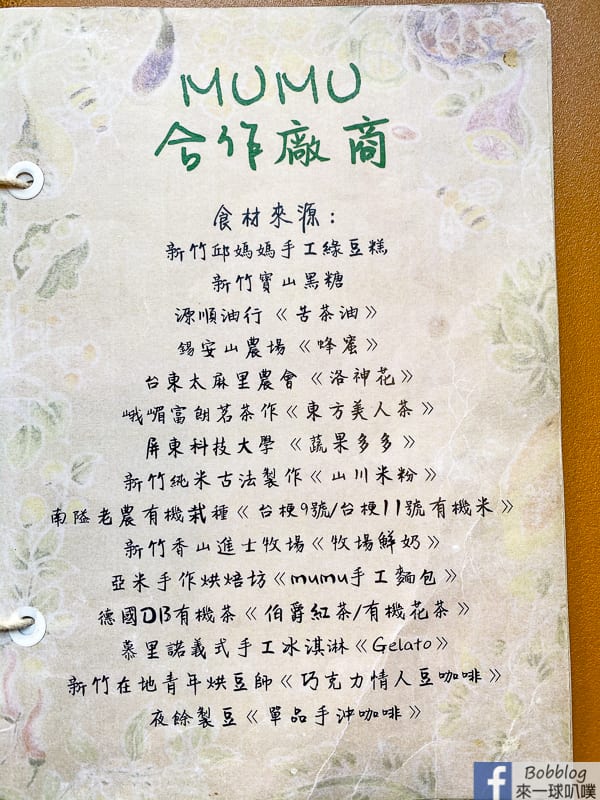 MUMU
合作廠商
食材來源：
新竹邱媽媽手工綠豆糕
新竹寶山黑糖
源順油行《苦茶油》
錫安山農場《蜂蜜》
台東太麻里農會《洛神花》
峨嵋富朗茗茶作《東方美人茶》
屏東科技大學《蔬果多多》
新竹純米古法製作《山川米粉》
南隘老農有機栽種《台梗9號/台梗11號有機米》
新竹香山進士牧場《牧場鮮奶》
亞米手作烘焙坊《mumu手工麵包》
德國DB有機茶《伯爵紅茶/有機花茶》
慕里諾義式手工冰淇淋《Gelato》
新竹在地青年烘豆師《巧克力情人豆咖啡》
夜餘製豆《單品手沖咖啡》
Bobblog
來一球叭噗